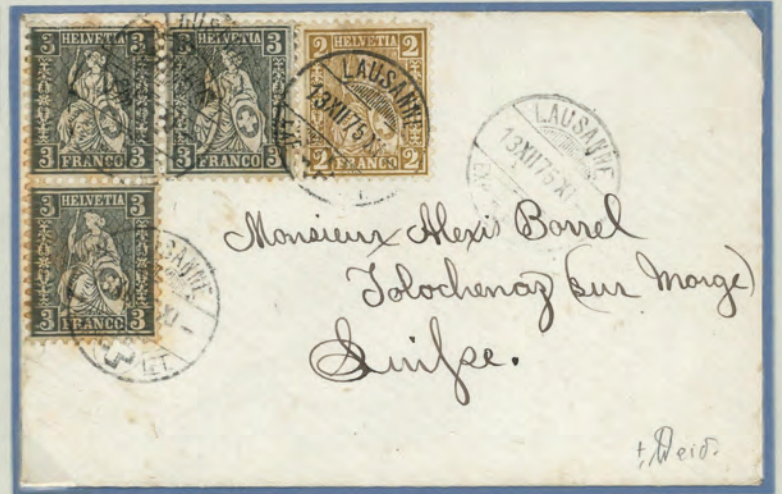 3 HELVETIA 3
3 FRANCO 3
3 HELVETIA 3
3 FRANCO 3
2 HELVETIA 2
2 FRANCO 2
LAUSANNE
13XII75XI
LAUSANNE
13XII75XI
3 HELVETIA 3
3 FRANCO 3
LAUSANNE
Monsieur Alexis Borrel
Tolochenaz (sur Morge)
Suisse.